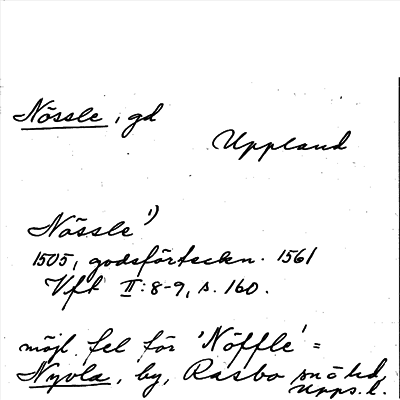 Nössle, gd
Uppland
Nössle¹⁾
1505, godsförteckn. 1561
Vft II:8-9, s. 160.
möjl. fel för 'Nöffle' =
Nyvla, by, Rasbo sn ö hd,
Upps. l.